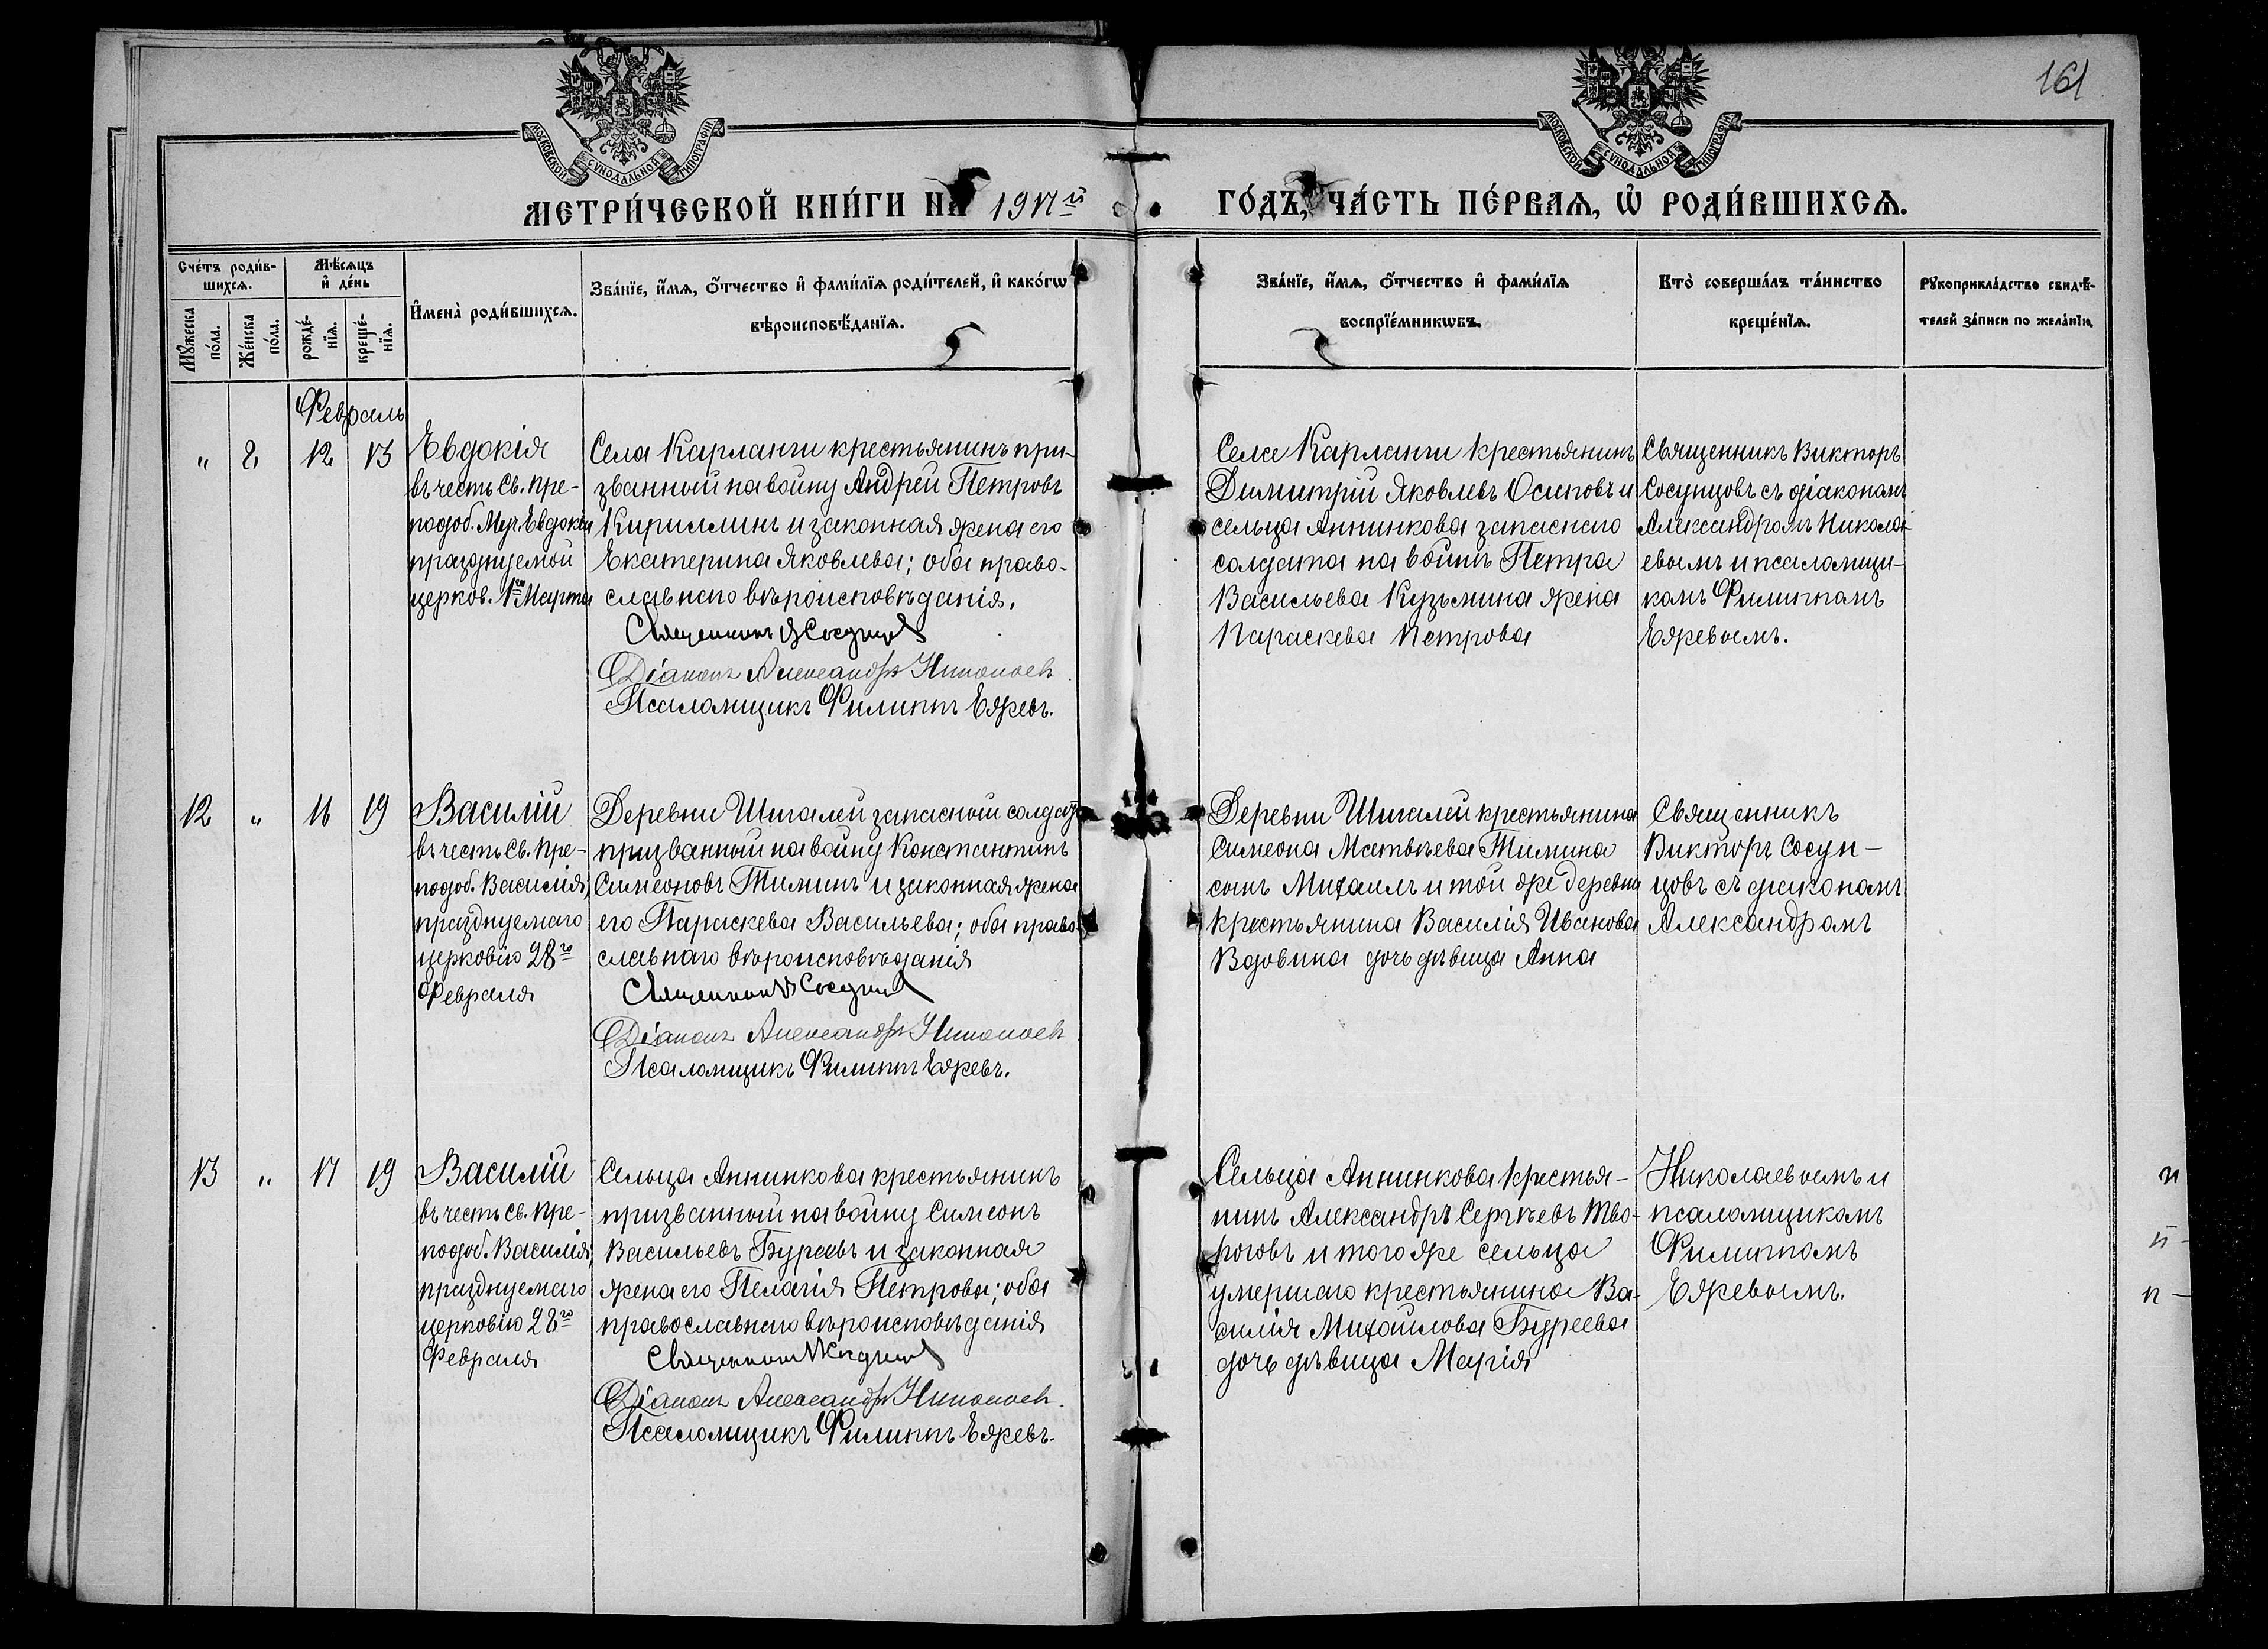 161
МОСКОВСКОЙ СѴНОДАЛЬНОЙ ТИПОГРАФІИ
МОСКОВСКОЙ СѴНОДАЛЬНОЙ ТИПОГРАФІИ
МЕТРИ́ЧЕСКОЙ КНИ́ГИ НА 1917й
ГО́ДЪ, ЧА́СТЬ ПЕ́РВАѦ, Ѡ РОДИ́ВШИХСѦ.
Сче́тъ роди́в-
шихсѧ.
Мꙋ́жеска
по́ла.
Же́нска
по́ла.
Мѣ́сѧцъ
и҆ де́нь
рожде́-
нїѧ.
креще́-
нїѧ.
И҆мена̀ роди́вшихсѧ.
Зва́нїе, и҆́мѧ, ѻ҆́тчество и҆ фами́лїѧ роди́телей, и҆ како́гѡ
вѣроисповѣ́данїѧ.
Зва́нїе, и҆́мѧ, ѻ҆́тчество и҆ фами́лїѧ
воспрїе́мникѡвъ.
Кто̀ соверша́лъ та́инство
креще́нїѧ.
Рꙋкоприкла́дство свидѣ́-
телей за́писи по жела́нїю.
Февраль
„ 2, 12 13
Евдокія
въ честь Св. Пре-
подоб. Муч. Евдокіи
празднуемой
церков. 1го Марта
Села Карланги крестьянинъ при-
званный на войну Андрей Петровъ
Кириллинъ и законная жена его
Екатерина Яковлева; оба право-
славнаго вѣроисповѣданія.
Священникъ В Сосунцов
Діаконъ Александръ Николаев
Псаломщикъ Филиппъ Ежевъ.
Села Карланги крестьянинъ
Димитрій Яковлевъ Осиповъ и
сельца Аннинкова запаснаго
солдата на войнѣ Петра
Васильева Кузьмина жена
Параскева Петрова
Священникъ Викторъ
Сосунцовъ съ діакономъ
Александромъ Никола-
евымъ и псаломщи-
комъ Филиппомъ
Ежевымъ.
12 „ 16 19
Василій
въ честь Св. Пре-
подоб. Василія,
празднуемаго
церковію 28го
Февраля
Деревни Шигалей запасной солдатъ
призванный на войну Константинъ
Симеоновъ Тиминъ и законная жена
его Параскева Васильева; оба право-
славнаго вѣроисповѣданія
Священникъ В Сосунцов
Діаконъ Александръ Николаев
Псаломщикъ Филиппъ Ежевъ.
Деревни Шигалей крестьянина
Симеона Матвѣева Тимина
сынъ Михаилъ и той же деревни
крестьянина Василія Иванова
Вдовина дочь дѣвица Анна
Священникъ
Викторъ Сосун-
цовъ съ діакономъ
Александромъ
13 „ 17 19
Василій
въ честь Св. Пре-
подоб. Василія,
празднуемаго
церковію 28го
Февраля
Сельца Аннинкова крестьянинъ
призванный на войну Симеонъ
Васильевъ Буреевъ и законная
жена его Пелагія Петрова; оба
православнаго вѣроисповѣданія
Священникъ В Сосунцов
Діаконъ Александръ Николаев.
Псаломщикъ Филиппъ Ежевъ.
Сельца Аннинкова крестья-
нинъ Александръ Сергѣевъ Тво-
роговъ и того же сельца
умершаго крестьянина Ва-
силія Михайлова Буреева
дочь дѣвица Марія
Николаевымъ и
псаломщикомъ
Филиппомъ
Ежевымъ.